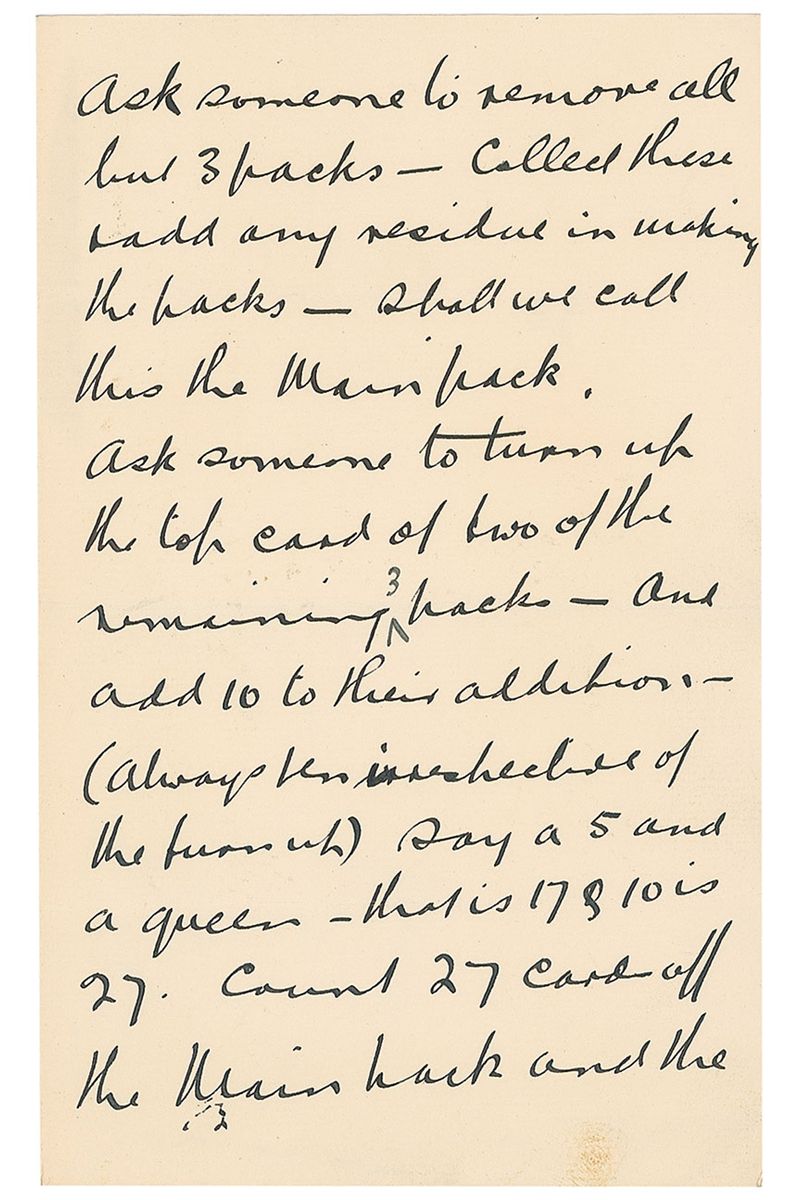 Ask someone to remove all
but 3 packs — Collect these
& add any residue in making
the packs — Shall we call
this the Main pack.
Ask someone to turn up
the top card of two of the
remaining 3 packs — And
add 10 to their addition —
(Always ten irrespective of
the turn up) Say a 5 and
a queen — that is 17 & 10 is
27. Count 27 cards off
the Main pack and the